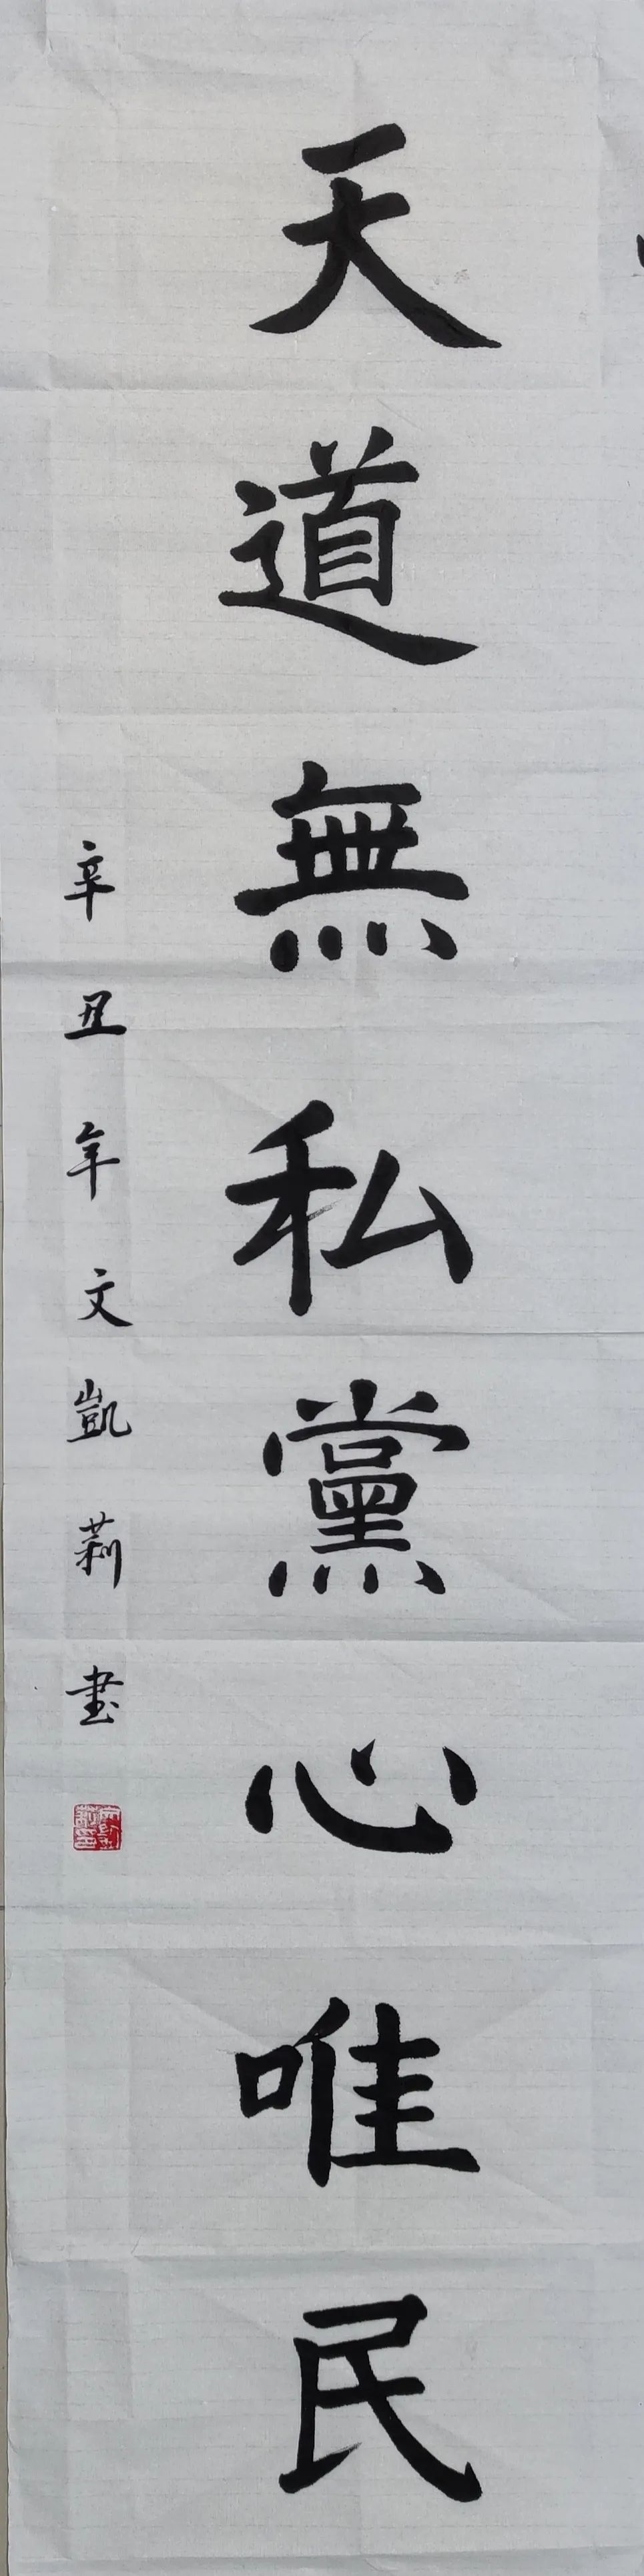 天道無私黨心唯民
辛丑年文凱莉書